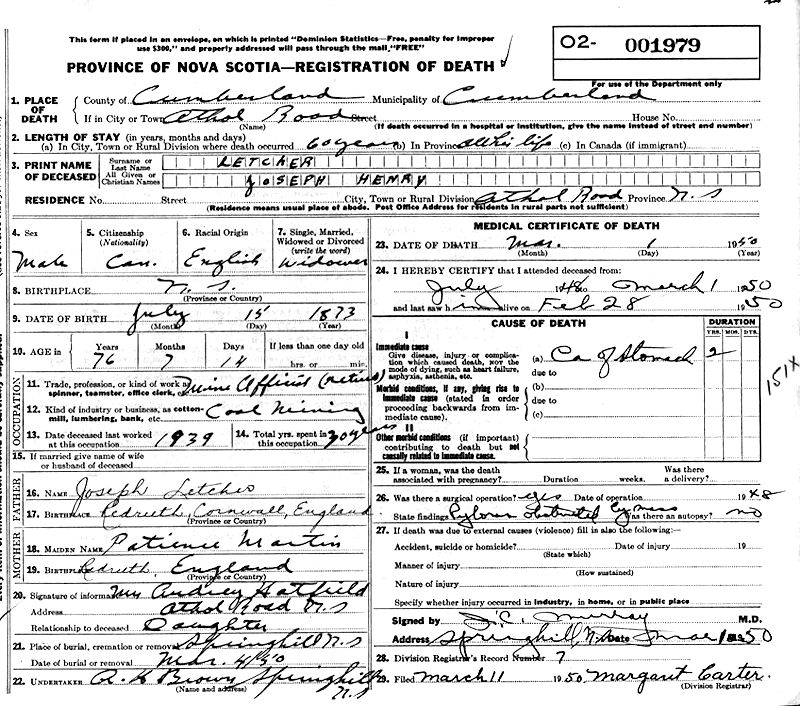 This form if placed in an envelope, on which is printed "Dominion Statistics—Free, penalty for improper
use $300," and properly addressed will pass through the mail, "FREE"
PROVINCE OF NOVA SCOTIA—REGISTRATION OF DEATH
O2- 001979
For use of the Department only
1. PLACE OF DEATH { County of Cumberland Municipality of Cumberland
If in City or Town Athol Road Street House No.
(Name) (If death occurred in a hospital or institution, give the name instead of street and number)
2. LENGTH OF STAY (in years, months and days)
(a) In City, Town or Rural Division where death occurred 60 years (b) In Province all his life (c) In Canada (if immigrant)
3. PRINT NAME OF DECEASED { Surname or Last Name LETCHER
All Given or Christian Names JOSEPH HENRY
RESIDENCE No. Street City, Town or Rural Division Athol Road Province N.S
(Residence means usual place of abode. Post Office Address for residents in rural parts not sufficient)
4. Sex Male
5. Citizenship (Nationality) Can.
6. Racial Origin English
7. Single, Married, Widowed or Divorced (write the word) Widower
8. BIRTHPLACE N.S.
(Province or Country)
9. DATE OF BIRTH July 15 1873
(Month) (Day) (Year)
10. AGE in Years 76 Months 7 Days 14 If less than one day old hrs. or min.
OCCUPATION
11. Trade, profession, or kind of work as spinner, teamster, office clerk, etc. Mine Official (retired)
12. Kind of industry or business, as cotton-mill, lumbering, bank, etc. Coal Mining
13. Date deceased last worked at this occupation 1939
14. Total yrs. spent in this occupation 30 years
15. If married give name of wife or husband of deceased
FATHER
16. NAME Joseph Letcher
17. BIRTHPLACE Redruth, Cornwall, England
(Province or Country)
MOTHER
18. MAIDEN NAME Patience Martin
19. BIRTHPLACE Redruth, England
(Province or Country)
20. Signature of informant Mrs Audrey Hatfield
Address Athol Road N.S
Relationship to deceased Daughter
21. Place of burial, cremation or removal Springhill N.S
Date of burial or removal Mar. 4/50
22. UNDERTAKER A. K Brown Springhill N.S
(Name and address)
MEDICAL CERTIFICATE OF DEATH
23. DATE OF DEATH Mar. 1 1950
(Month) (Day) (Year)
24. I HEREBY CERTIFY that I attended deceased from:
July 1948 to March 1 1950
and last saw him alive on Feb 28 1950
CAUSE OF DEATH
DURATION
YRS. MOS. DYS.
I
Immediate cause
Give disease, injury or complication which caused death, not the mode of dying, such as heart failure, asphyxia, asthenia, etc.
(a) Ca of Stomach 2
due to
Morbid conditions, if any, giving rise to immediate cause (stated in order proceeding backwards from immediate cause).
(b)
due to
(c)
II
Other morbid conditions (if important) contributing to death but not causally related to immediate cause.
151X
25. If a woman, was the death associated with pregnancy? Duration weeks. Was there a delivery?
26. Was there a surgical operation? yes Date of operation 1948
State findings Pylorus Obstructed by mass Was there an autopsy? no
27. If death was due to external causes (violence) fill in also the following:—
Accident, suicide or homicide? Date of injury 19
(State which)
Manner of injury
(How sustained)
Nature of injury
Specify whether injury occurred in industry, in home, or in public place
Signed by J.C. Murray M.D.
Address Springhill, N.S. Date Mar 1 1950
28. Division Registrar's Record Number 7
29. Filed March 11 1950 Margaret Carter.
(Division Registrar)